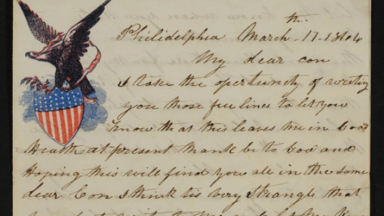 Philidelphea March th. 17. 1864
My dear con
I take the opertunety of writing
you those few lines to let you
know that this leaves me in Good
Health at present thank be to God and
Hoping this will find you all in the same
dear Con I think tis very Strange that